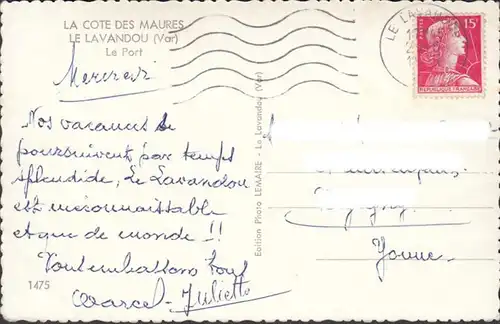 LA COTE DES MAURES
LE LAVANDOU (Var)
Le Port
Mercredi
Nos vacances se
poursuivent par temps
splendide, Le Lavandou
est méconnaissable
et que de monde !!
Marcel - Juliette
1475
Edition Photo LEMAIRE - Le Lavandou (Var)
LE LAVAN
POSTES
15F
REPUBLIQUE FRANÇAISE
Yonne